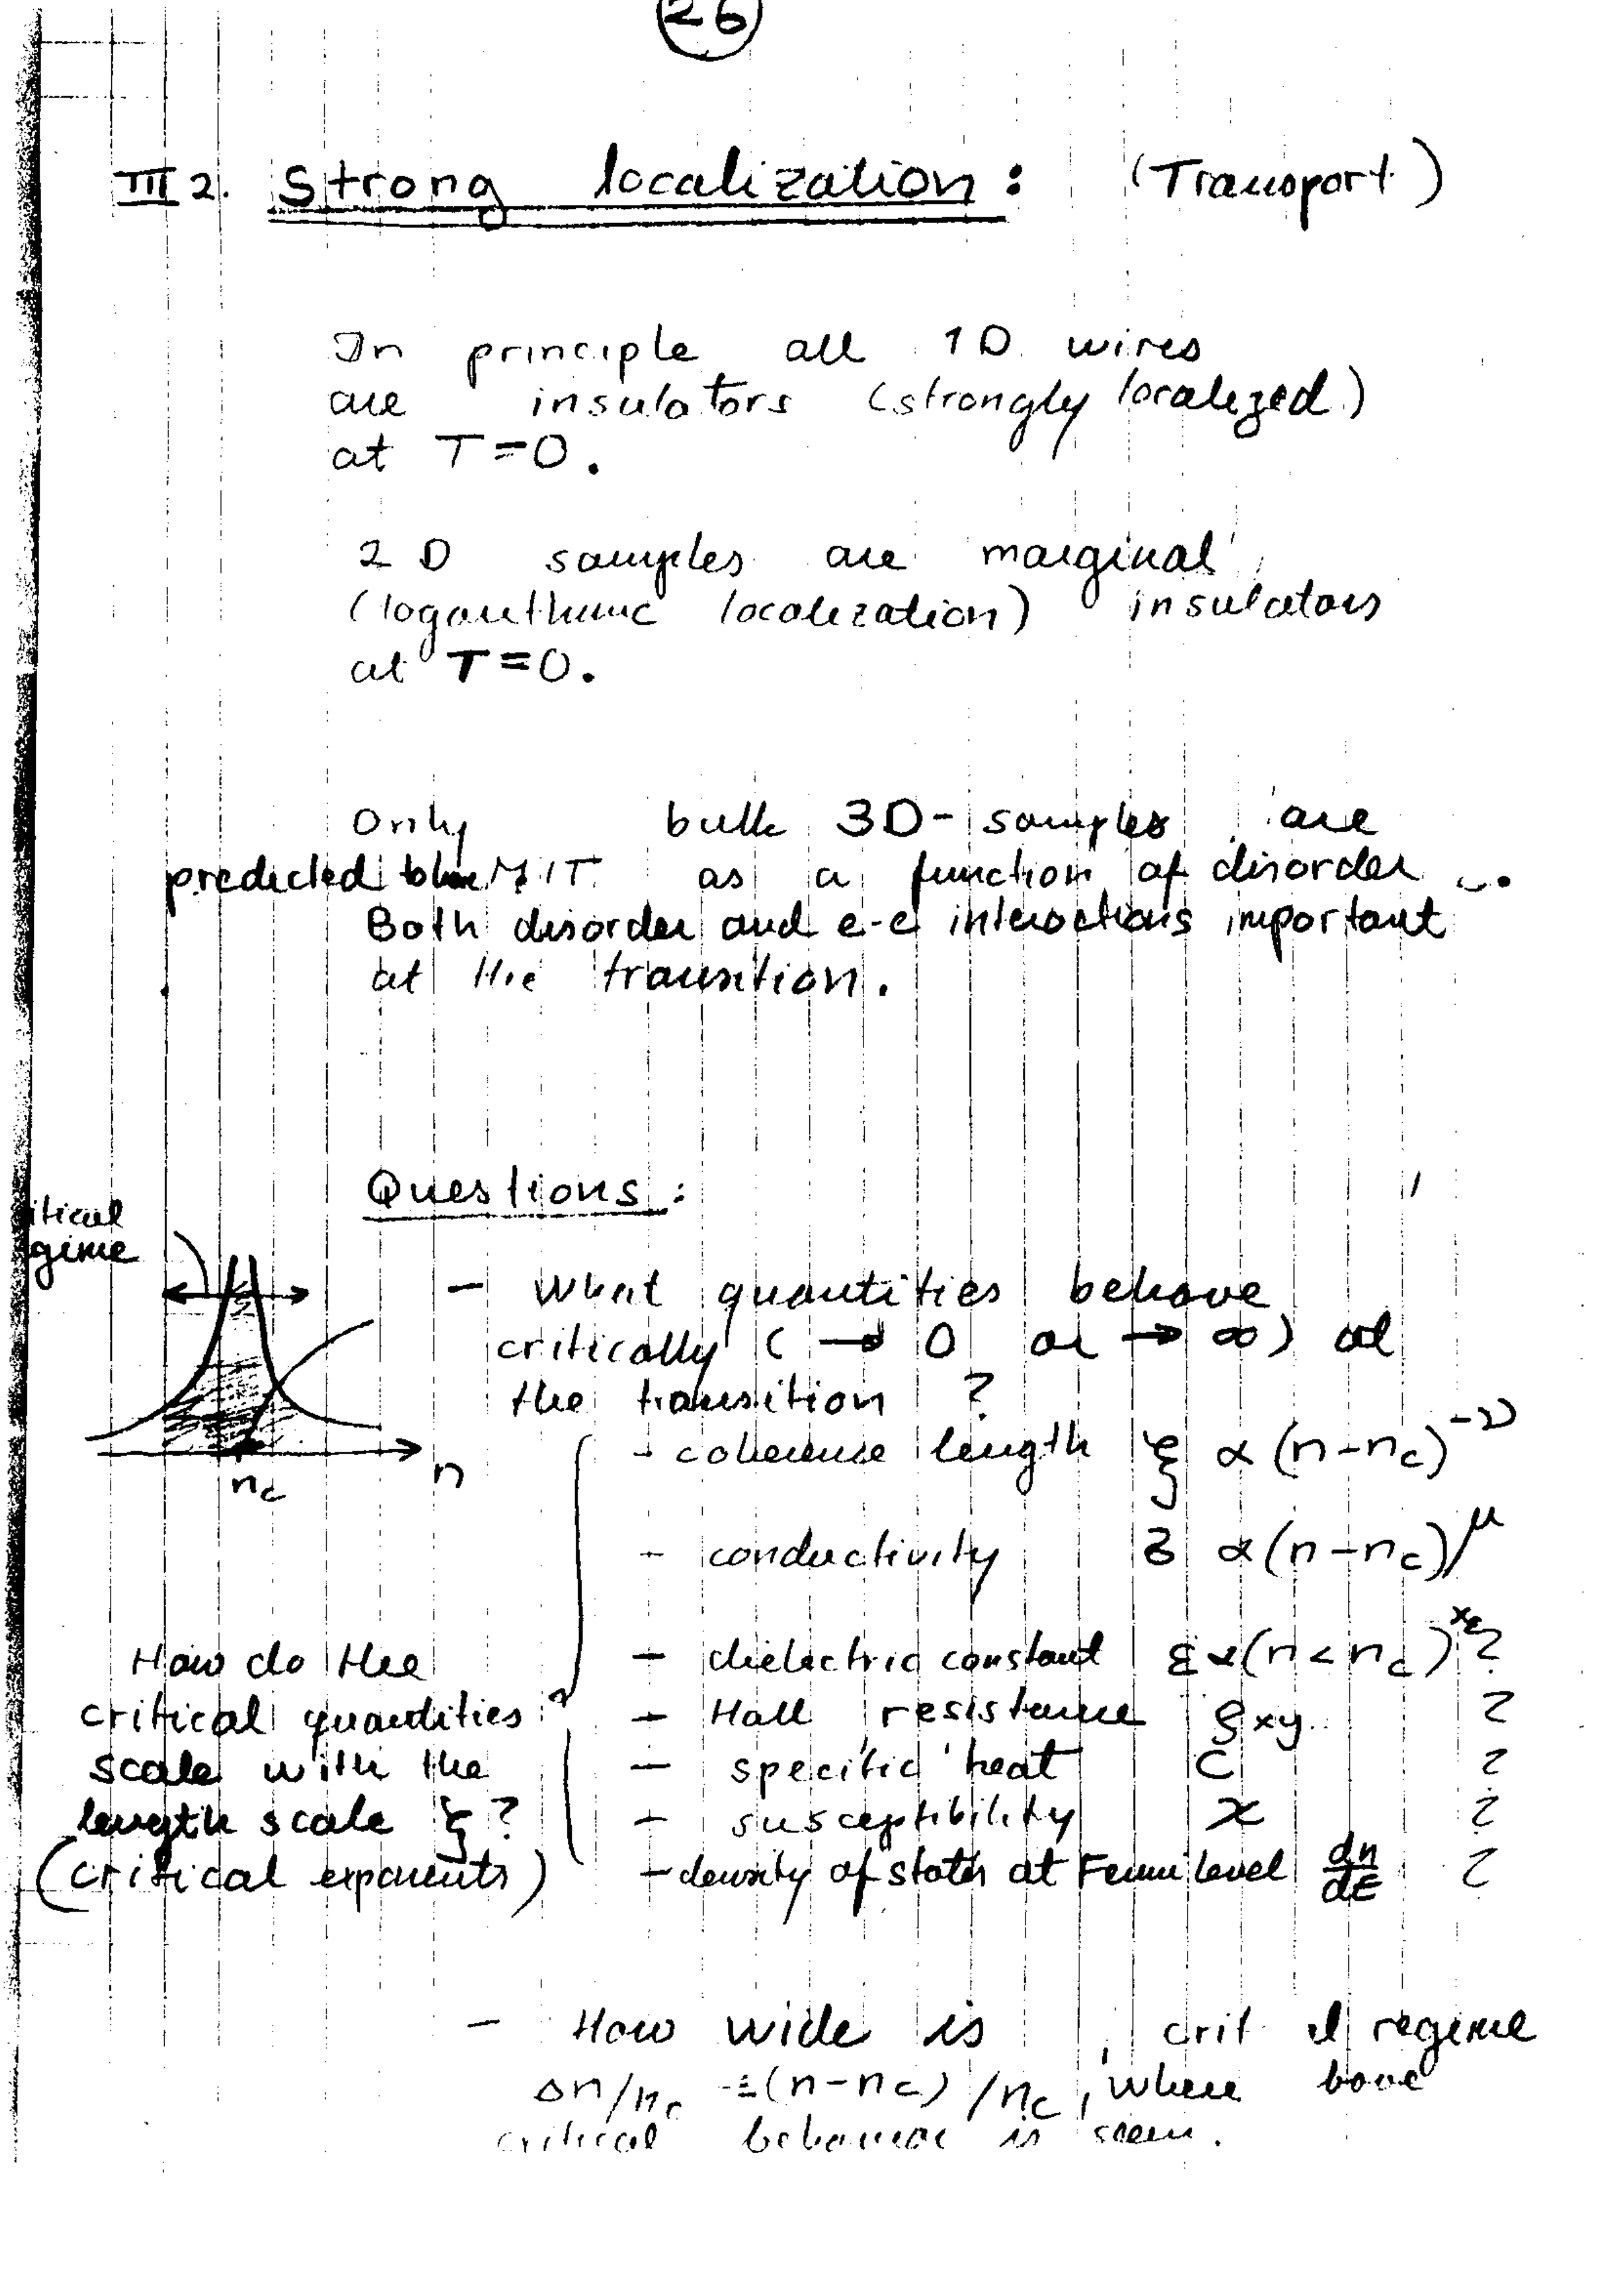 26
III 2. Strong localization: (Transport)
In principle all 1D wires
are insulators (strongly localized)
at T=0.
2D samples are marginal
(logarithmic localization) insulators
at T=0.
Only bulk 3D-samples are
predicted MIT as a function of disorder
Both disorder and e-e interactions important
at the transition.
Questions:
itical
gime
n_c
n
- What quantities behave
critically ( → 0 or → ∞) at
the transition ?
- coherence length ξ ∝ (n-n_c)^-ν
- conductivity σ ∝ (n-n_c)^μ
- dielectric constant ε ∝ (n<n_c) ?
- Hall resistance ρxy ?
- specific heat C ?
- susceptibility χ ?
- density of states at Fermi level dn/dE ?
How do the
critical quantities
scale with the
length scale ξ ?
(critical exponents)
- How wide is crit l regime
Δn/n_c ≡ (n-n_c)/n_c, where
critical behavior is seen.